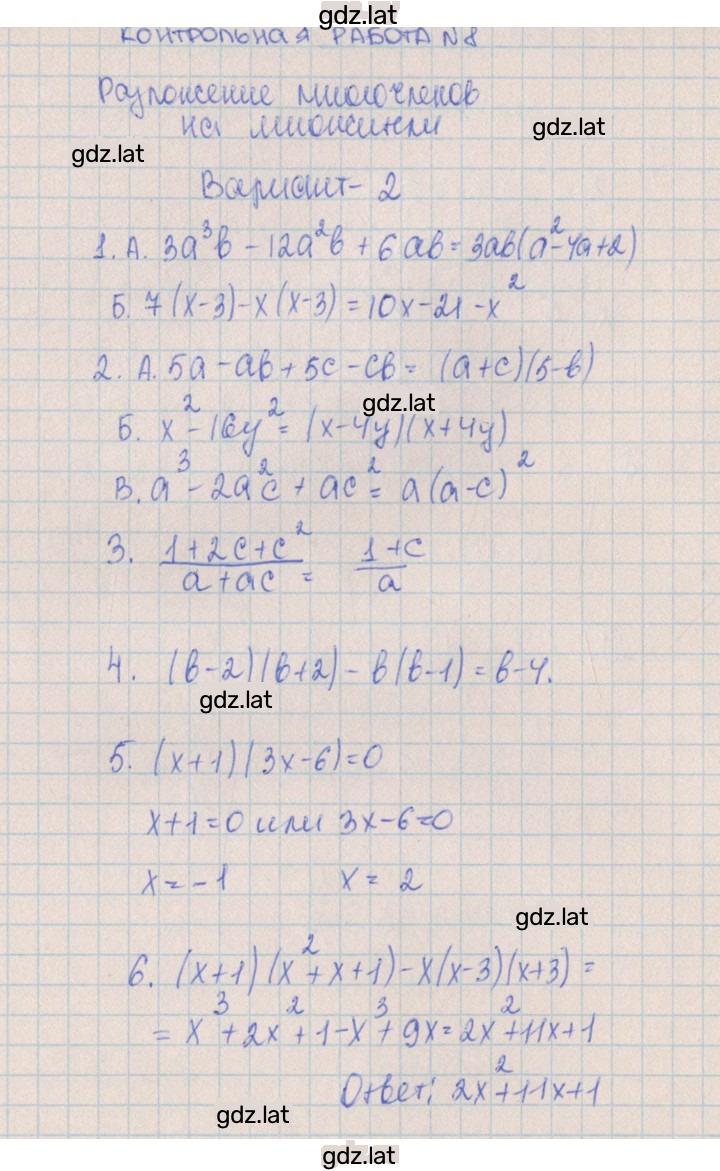 gdz.lat
КОНТРОЛЬНАЯ РАБОТА N8
Разложение многочленов
на множители
gdz.lat
gdz.lat
Вариант - 2
1. А. 3a³b - 12a²b + 6ab = 3ab(a² - 4a + 2)
Б. 7(x-3) - x(x-3) = 10x - 21 - x²
2. А. 5a - ab + 5c - cb = (a+c)(5-b)
gdz.lat
Б. x² - 16y² = (x-4y)(x+4y)
В. a³ - 2ac² + ac² = a(a-c)²
3. (1+2c+c²)/(a+ac) = (1+c)/a
4. (b-2)(b+2) - b(b-1) = b-4.
gdz.lat
5. (x+1)(3x-6)=0
x+1=0 или 3x-6=0
x = -1 x = 2
gdz.lat
6. (x+1)(x²+x+1) - x(x-3)(x+3) =
= x³+2x²+1-x³+9x = 2x²+11x+1
Ответ: 2x²+11x+1
gdz.lat
gdz.lat